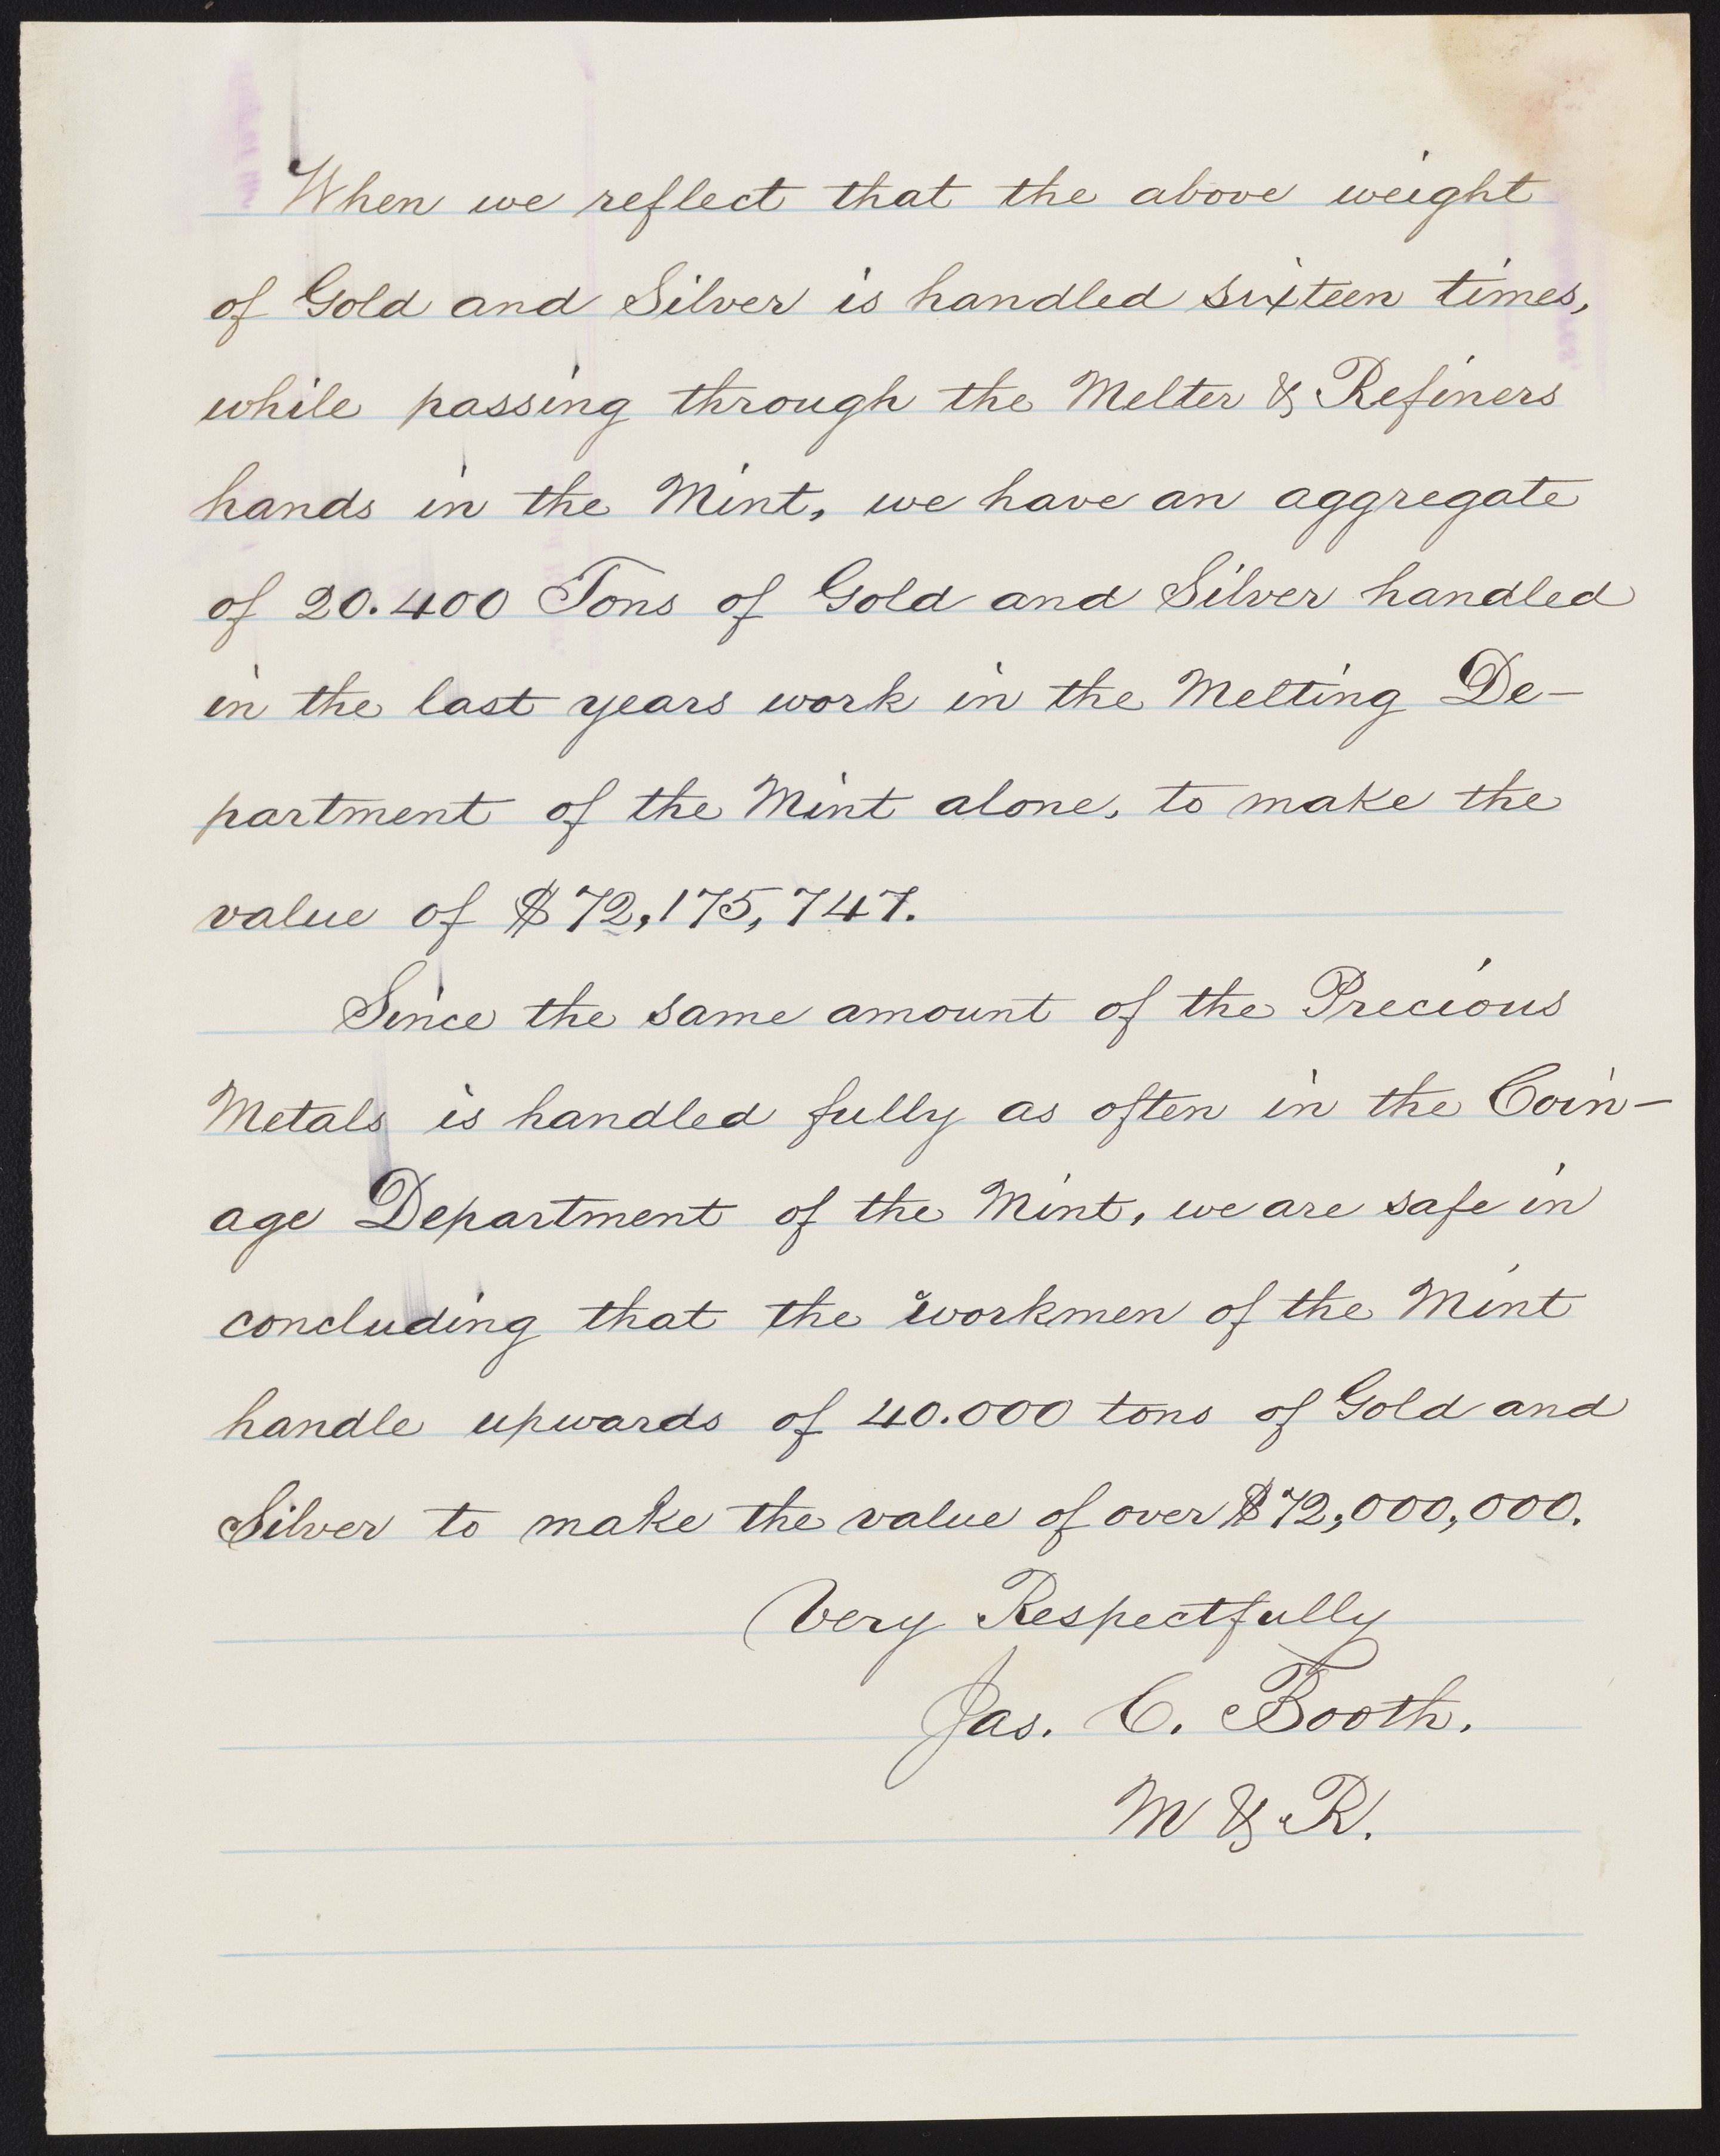 When we reflect that the above weight
of Gold and Silver is handled sixteen times,
while passing through the Melter & Refiners
hands in the Mint, we have an aggregate
of 20.400 Tons of Gold and Silver handled
in the last years work in the Melting De-
partment of the Mint alone, to make the
value of $72,175,747.
Since the same amount of the Precious
Metals is handled fully as often in the Coin-
age Department of the Mint, we are safe in
concluding that the workmen of the Mint
handle upwards of 40.000 tons of Gold and
Silver to make the value of over $72,000,000.
Very Respectfully
Jas. C. Booth.
M & R.